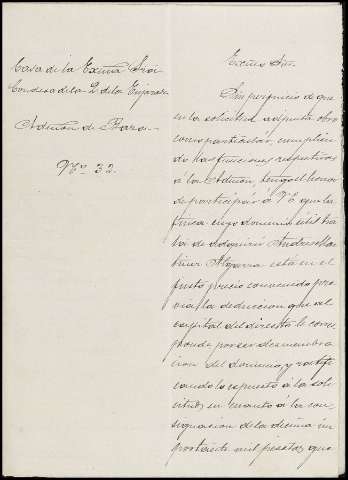 Casa de la Excma Sra
Condesa de la Q de la Enjarada
Admon de Baza
Nº 32
Excmo Sor.
Sin perjuicio de que
en la solicitud adjunta obro
como particular, cumplien
do las funciones respectivas
á la Admon, tengo el honor
de participar á V.E. que la
finca cuyo dominio util tra
ta de adquirir Andres Mar
tinez Algarra está en el
justo precio convenido pre
via la deduccion que al
capital del directo le corres
ponde por ser desmembra
cion del dominio, y ratifi
cando lo expuesto á la soli
citud, en cuanto á la con
signacion de la decima im
portante mil pesetas, que